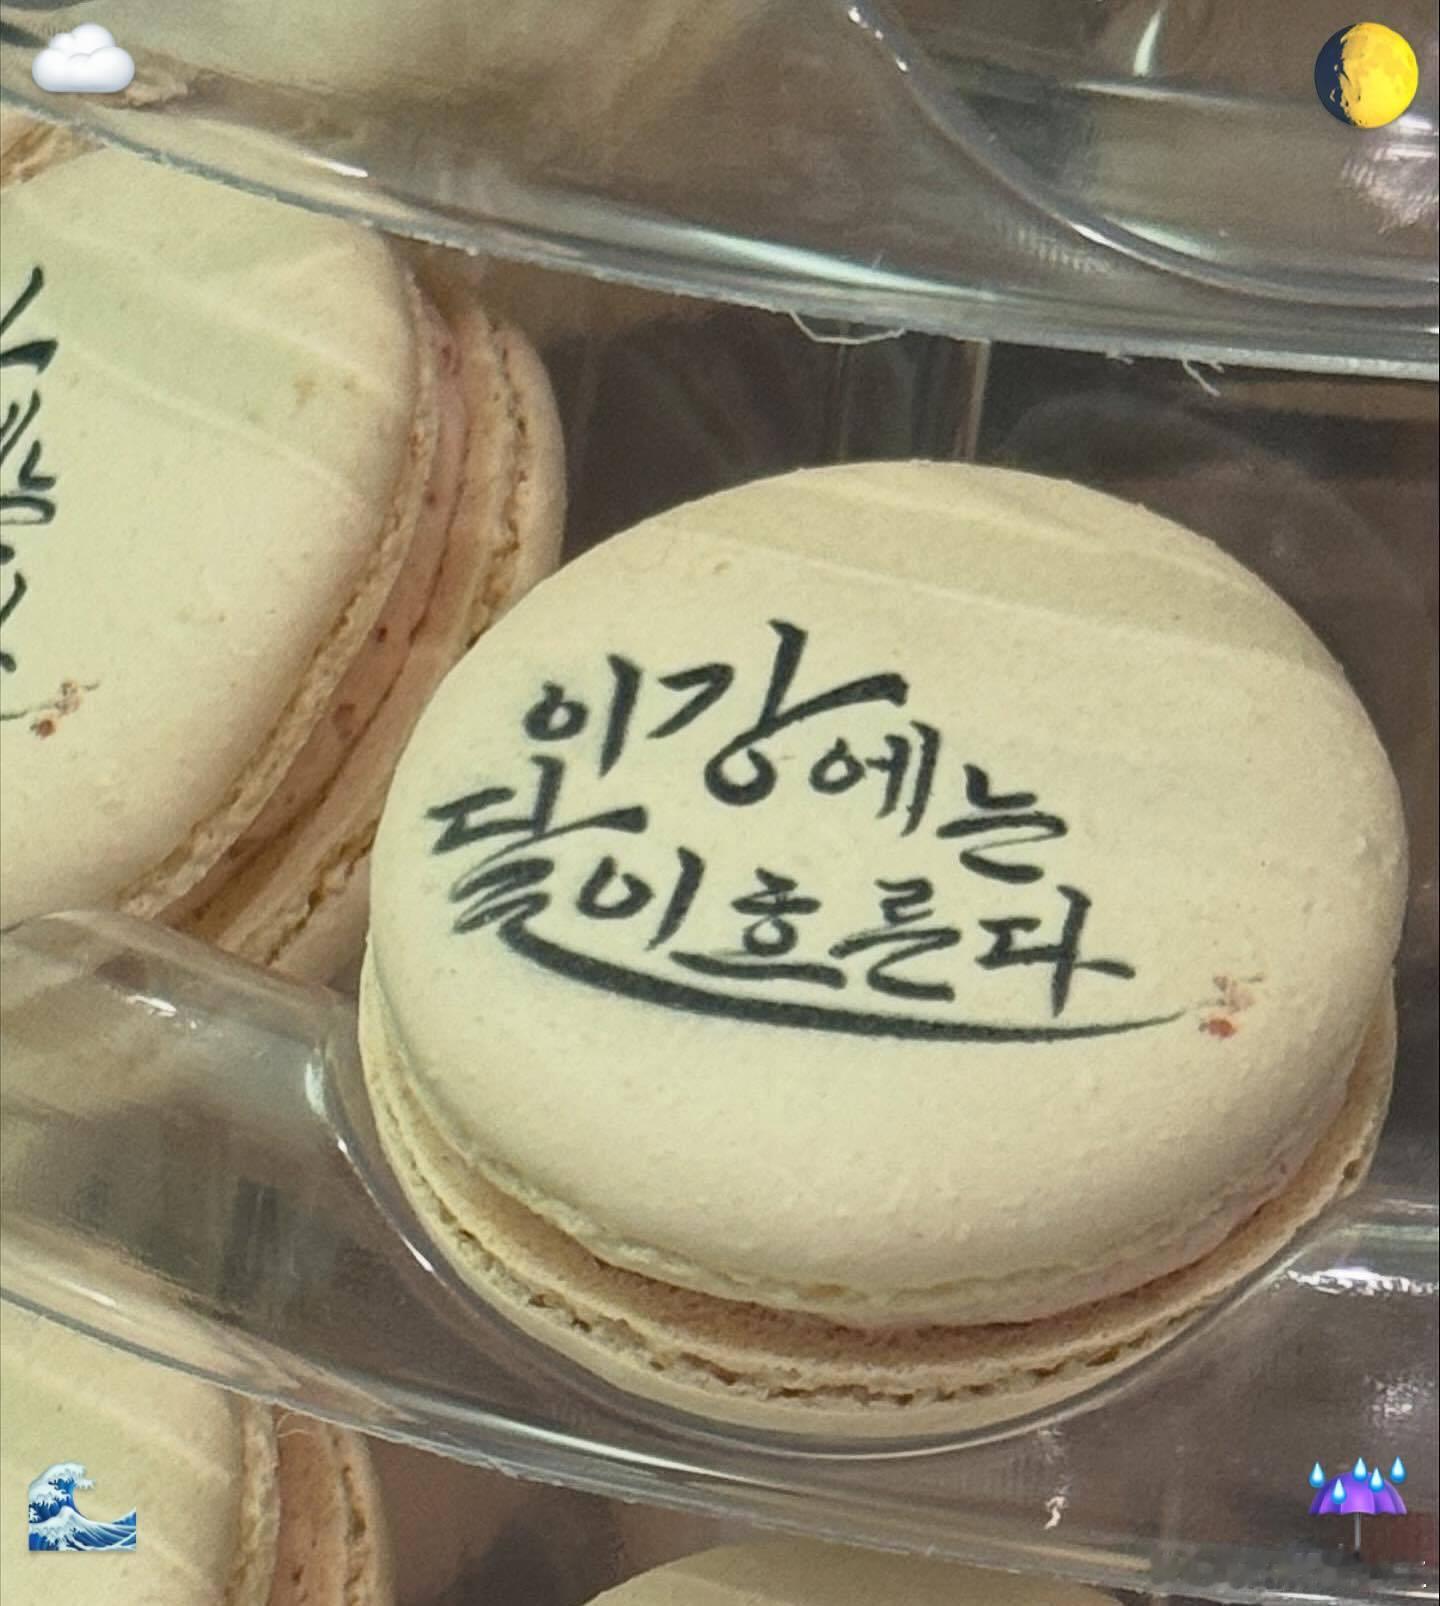 이 강에는
달이 흐른다